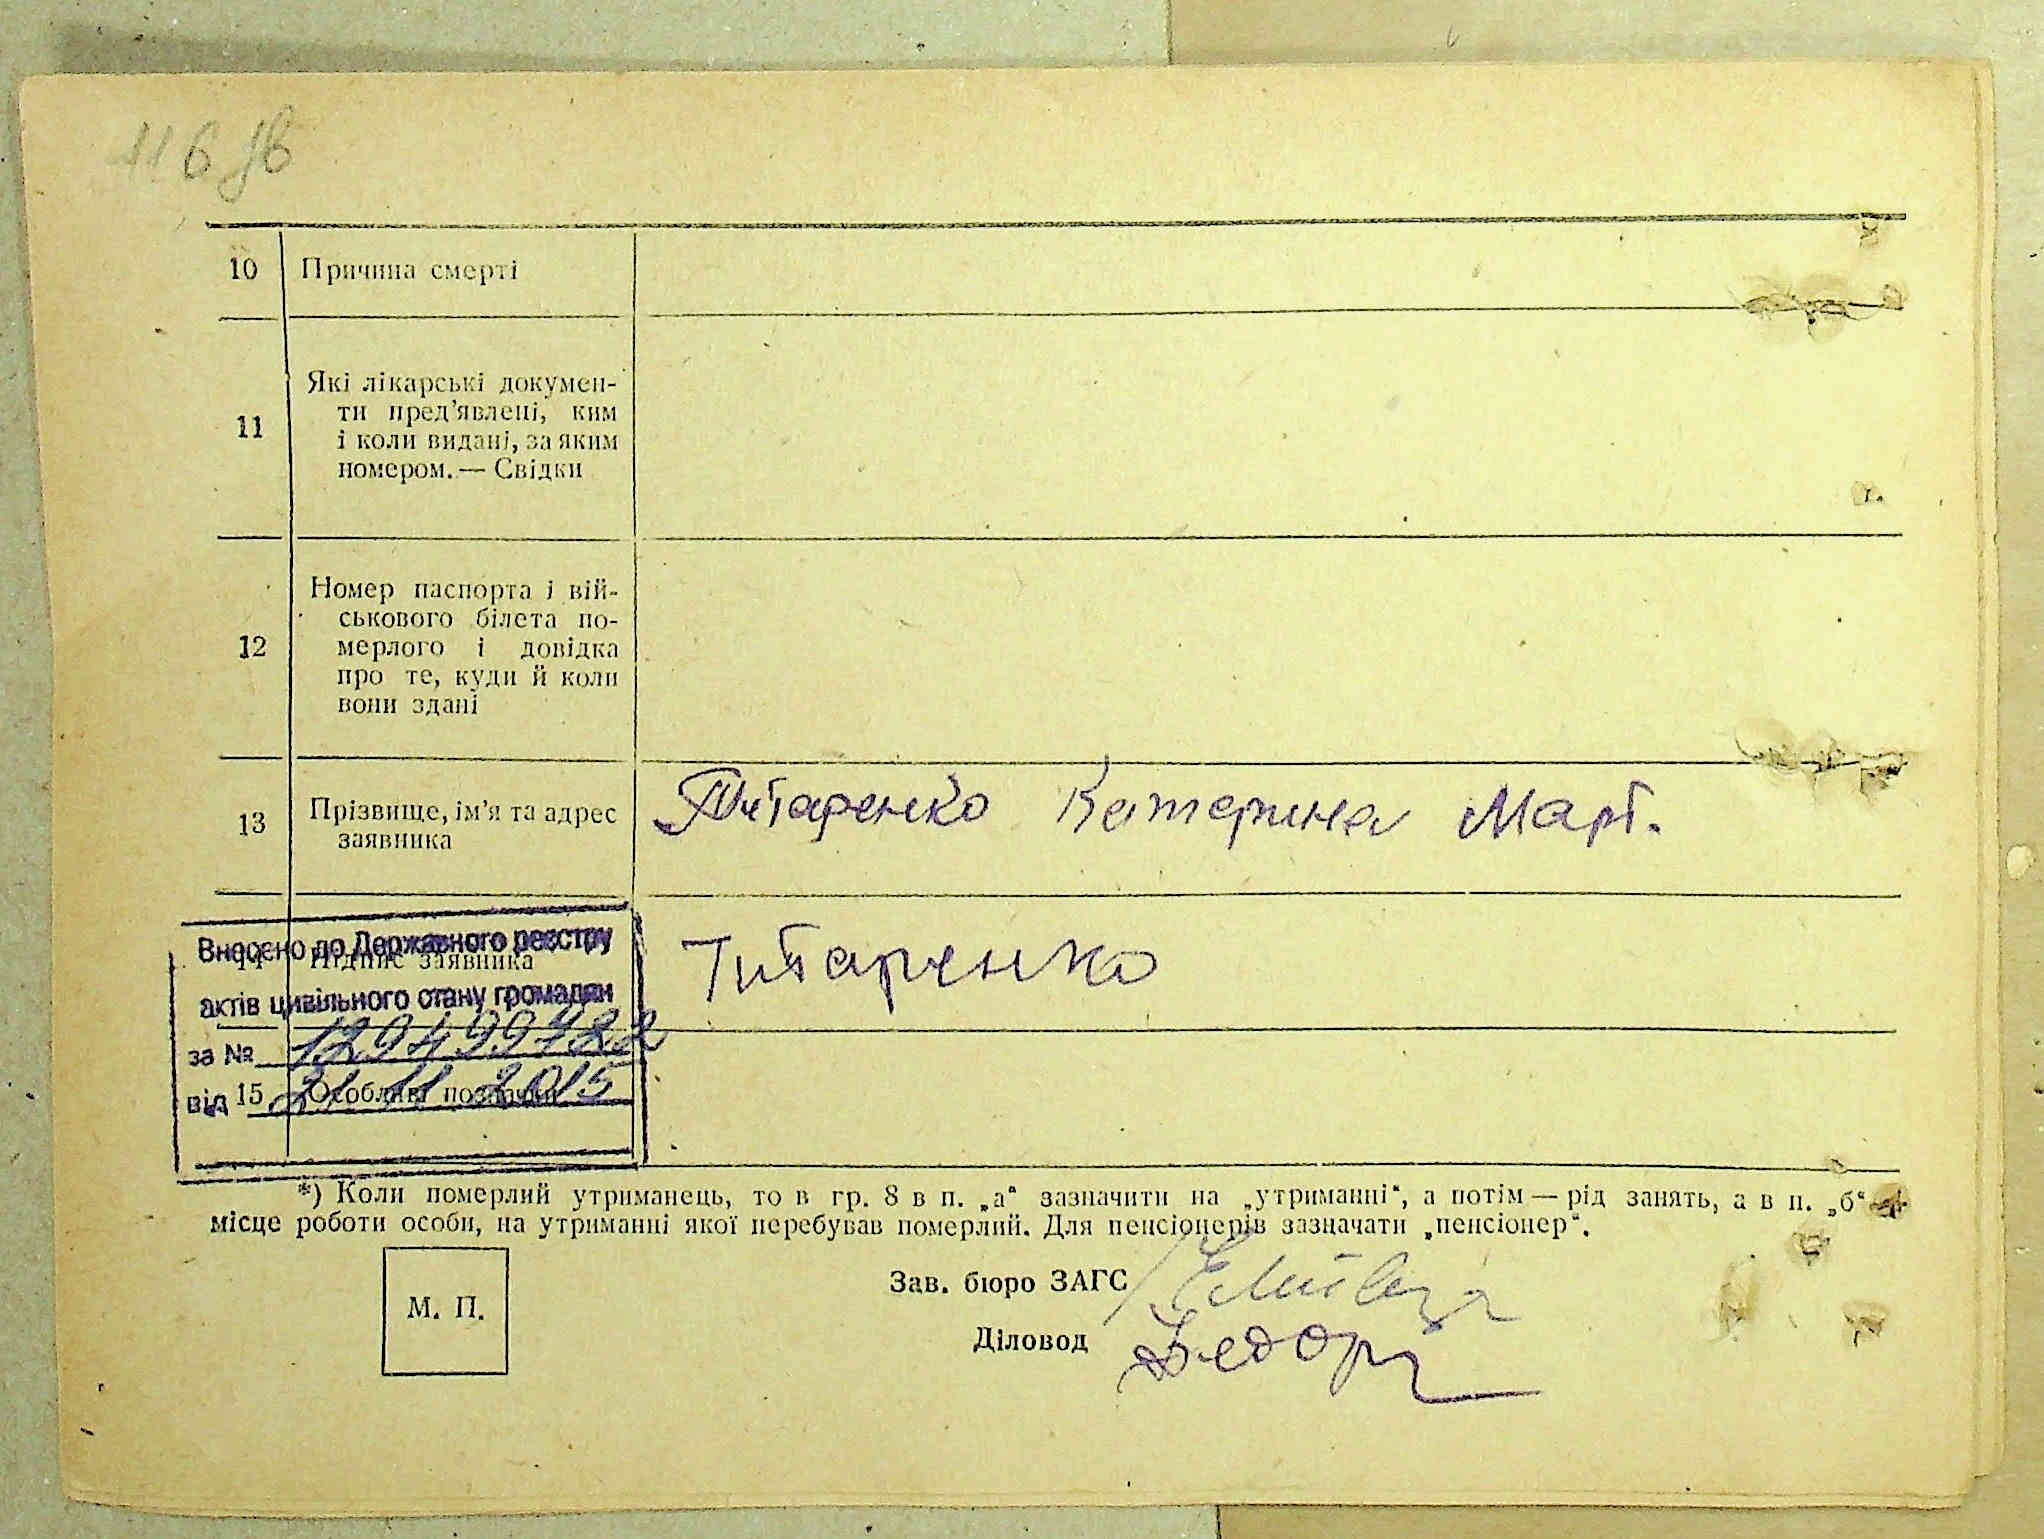 116 зв
10 Причина смерті
11 Які лікарські докумен-
ти пред'явлені, ким
і коли видані, за яким
номером. — Свідки
г.
12 Номер паспорта і вій-
ськового білета по-
мерлого і довідка
про те, куди й коли
вони здані
13 Прізвище, ім'я та адрес
заявника
Титаренко Катерина Март.
14 Підпис заявника
Титаренко
Внесено до Державного реєстру
актів цивільного стану громадян
за №
від 21 11 2015
15 Особливі позначки
*) Коли померлий утриманець, то в гр. 8 в п. „а“ зазначити на „утриманні“, а потім — рід занять, а в п. „б“
місце роботи особи, на утриманні якої перебував померлий. Для пенсіонерів зазначати „пенсіонер“.
М. П.
Зав. бюро ЗАГС
Діловод